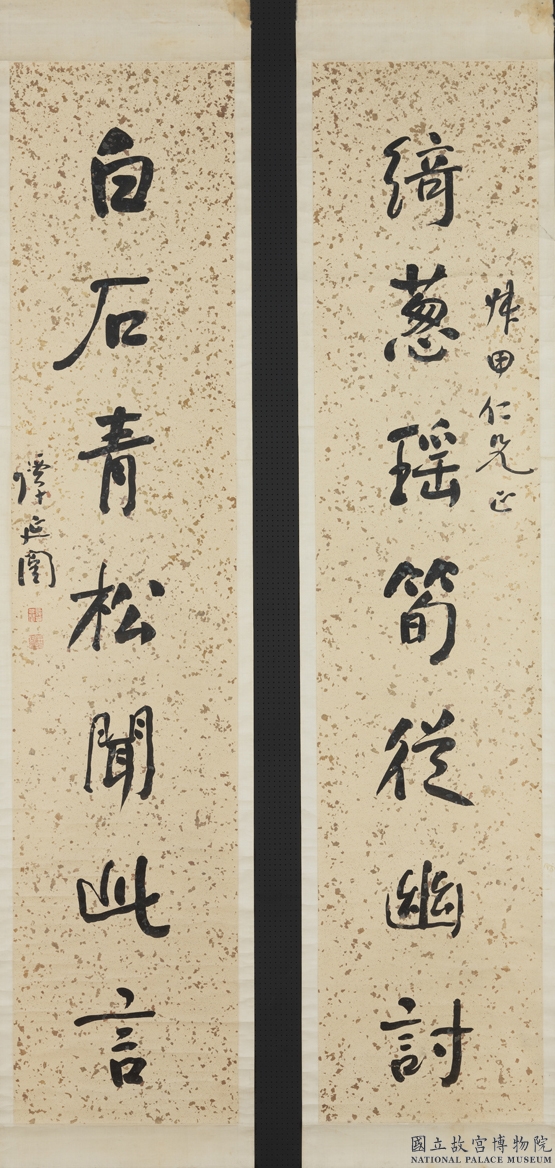 綺葱瑤筍從幽討
甲仁兄正
白石青松聞此言
譚延闓
國立故宮博物院
NATIONAL PALACE MUSEUM